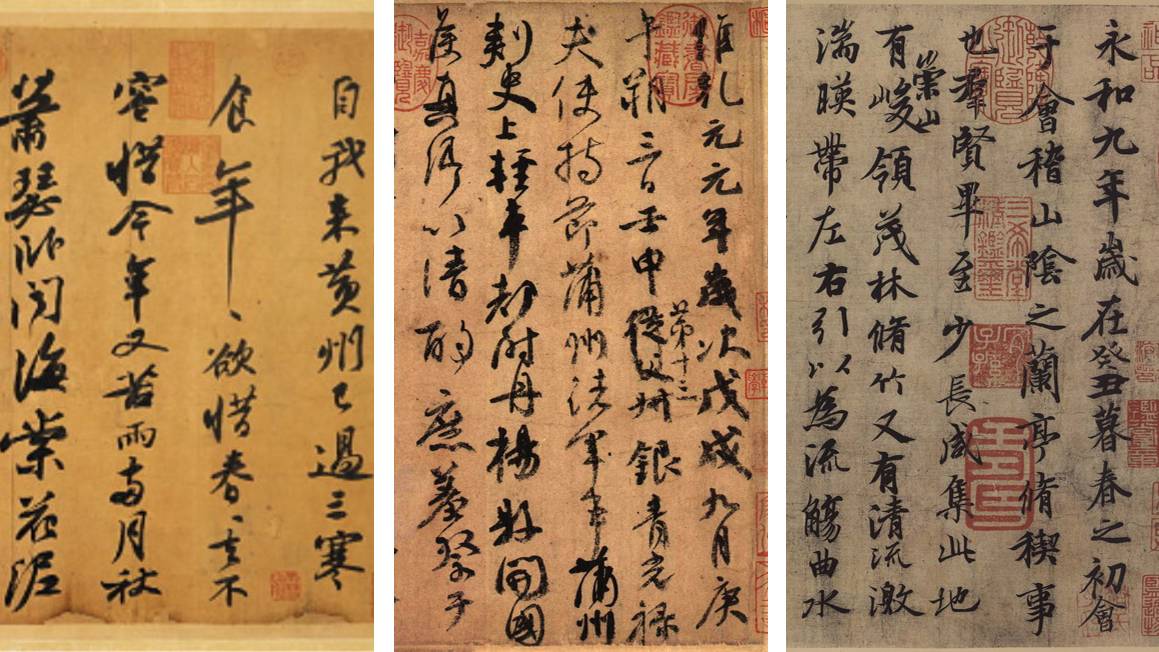 永和九年歲在癸丑暮春之初會
于會稽山陰之蘭亭脩稧事
也羣賢畢至少長咸集此地
有崇山峻領茂林脩竹又有清流激
湍暎帶左右引以為流觴曲水
維乾元元年歲次戊戌九月庚
午朔三日壬申第十三從父叔銀青光祿
夫使持節蒲州諸軍事蒲州
刺史上輕車都尉丹楊縣開國
侯真卿以清酌庶羞祭于
自我来黃州已過三寒
食年〻欲惜春〻去不
容惜今年又苦雨兩月秋
蕭瑟卧聞海棠花泥